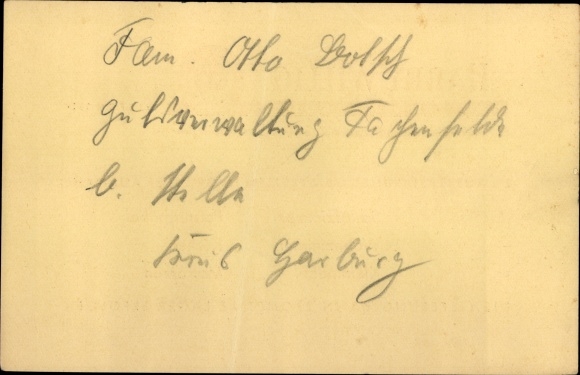 Fam. Otto Botsch
Gutsverwaltung Fachenfelde
b. Stelle
Kreis Harburg